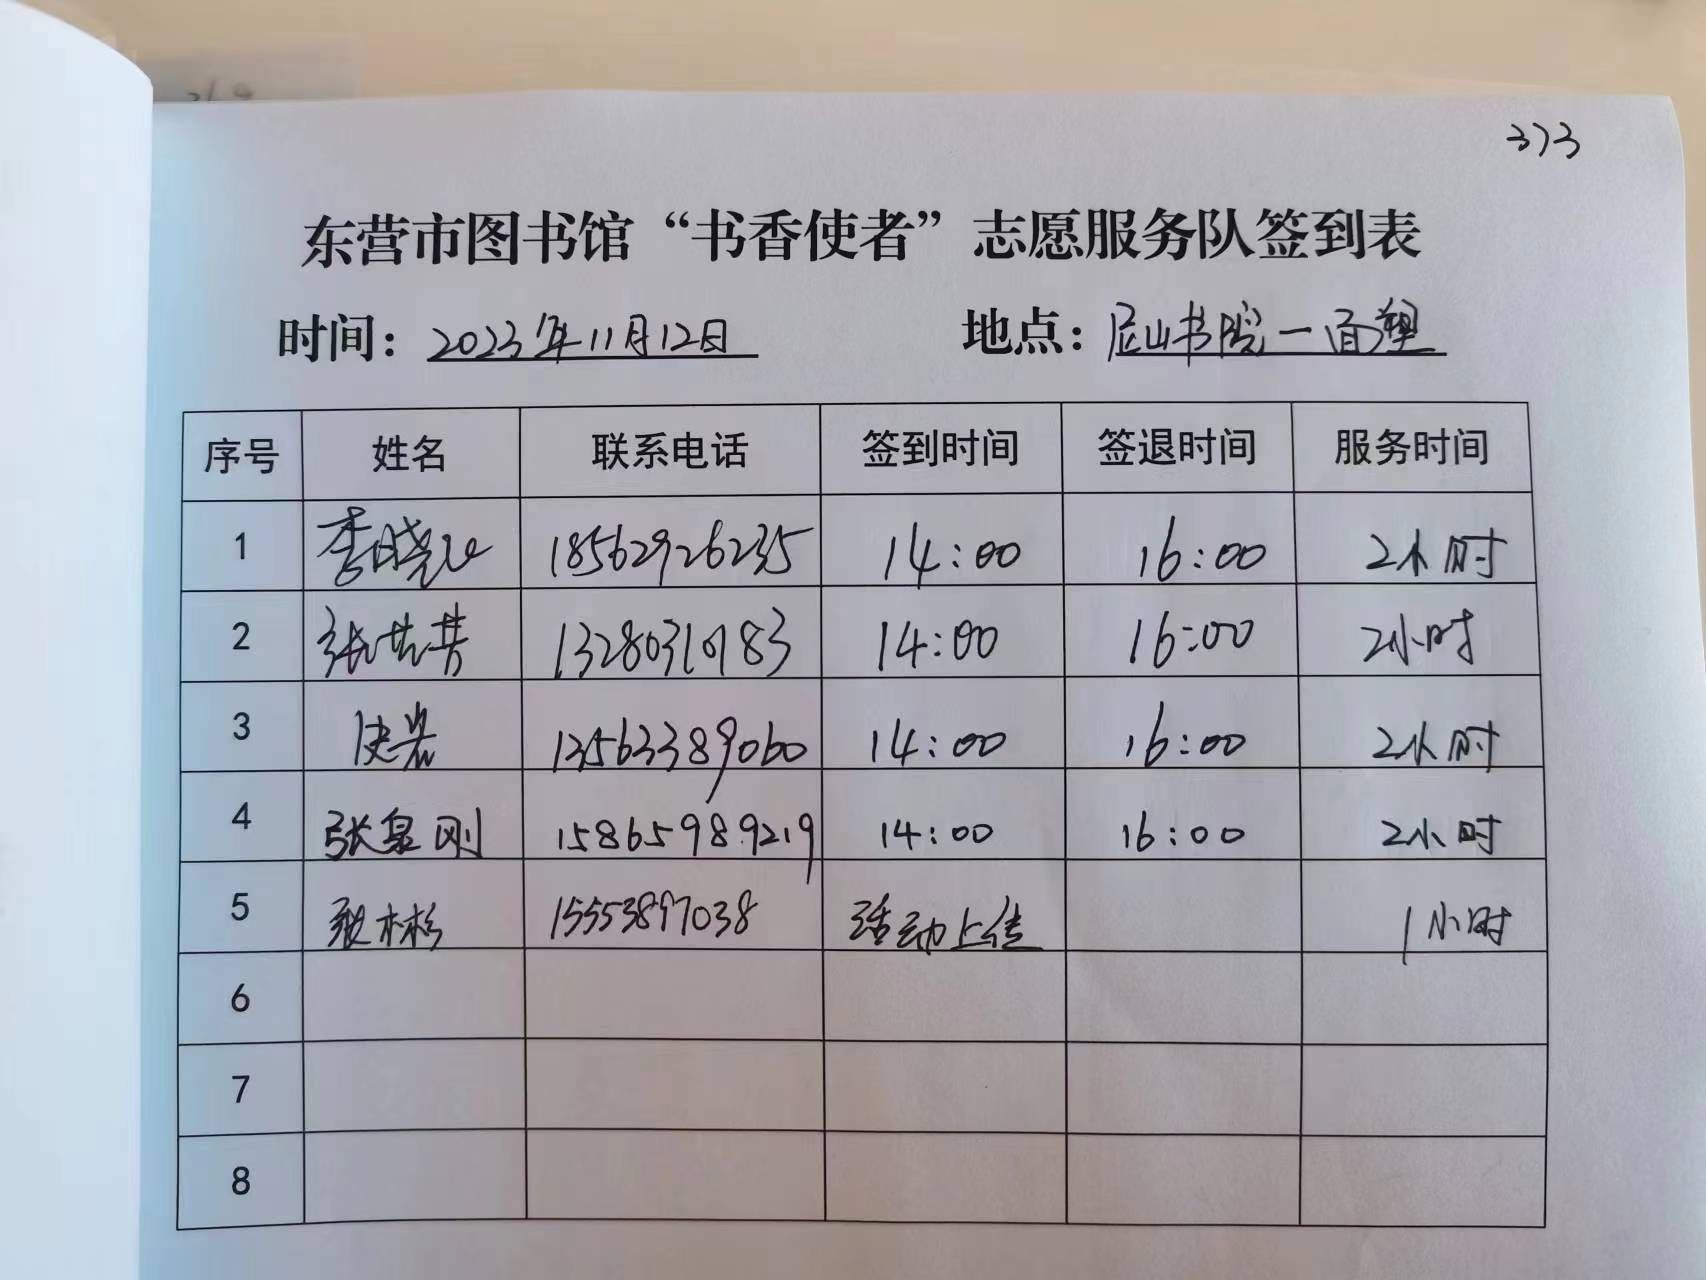 373
东营市图书馆“书香使者”志愿服务队签到表
时间：2023年11月12日 地点：尼山书院一面塑
序号 姓名 联系电话 签到时间 签退时间 服务时间
1 李晓 18562926235 14:00 16:00 2小时
2 张 13280310183 14:00 16:00 2小时
3 13563389060 14:00 16:00 2小时
4 张泉刚 15865989219 14:00 16:00 2小时
5 林杉 15553897038 活动上传 1小时
6
7
8